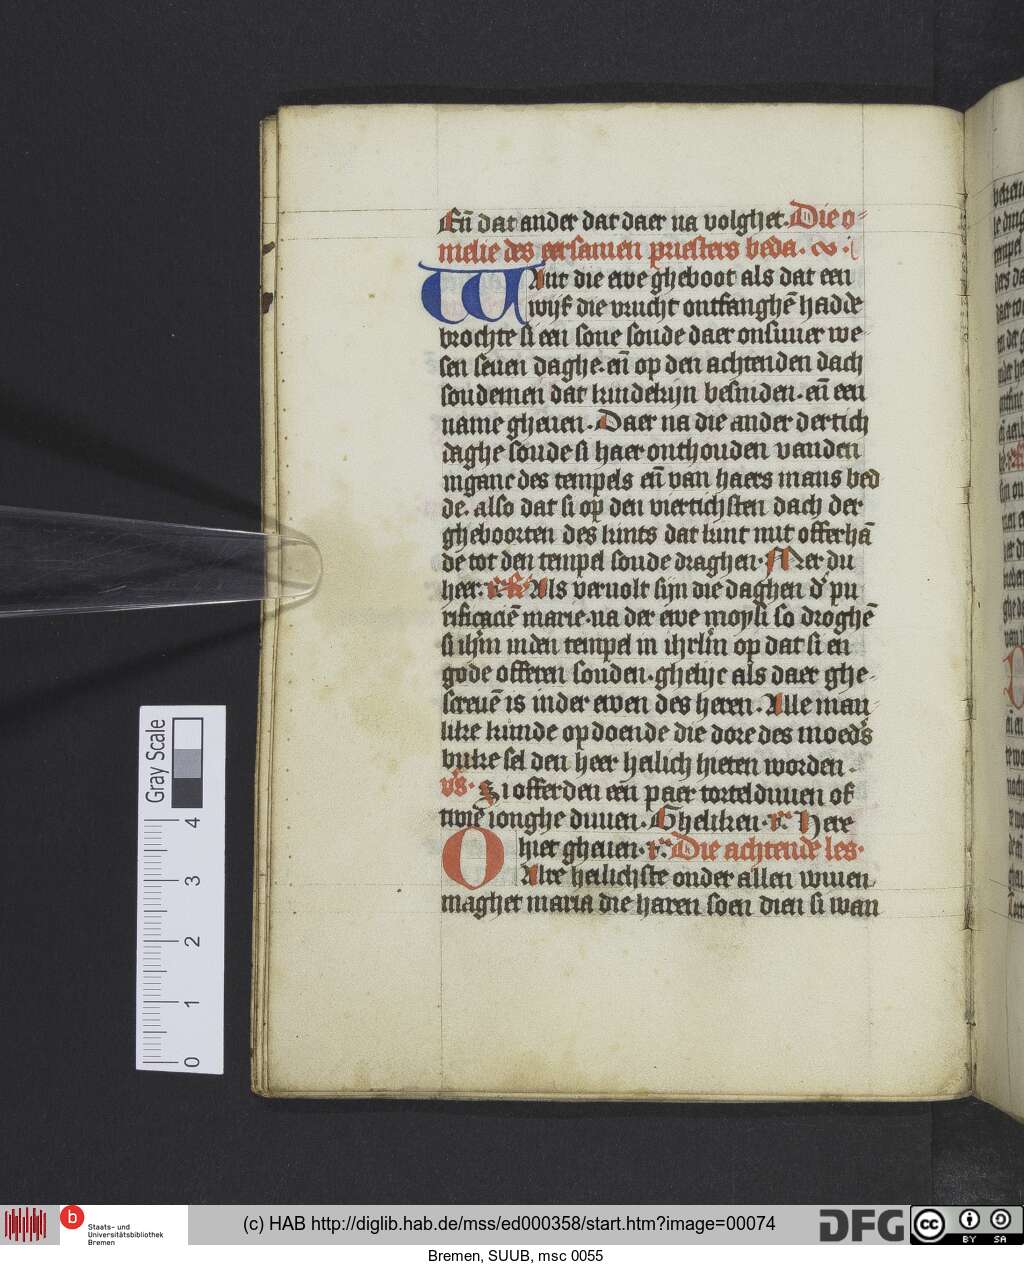 Eñ dat ander dat daer na volghet. Die o⸗
melie des eersamen priesters beda.
WAnt die ewe gheboot als dat een
wijf die vrucht ontfanghē hadde
brochte si een sone soude daer onsuuer we⸗
sen seuen daghe. eñ op den achtenden dach
soudemen dat kindekijn besniden. eñ een
name gheuen. Daer na die ander dertich
daghe soude si haer onthouden vanden
inganc des tempels eñ van haers mans bed
de. also dat si op den viertichsten dach der
gheboorten des kints dat kint mit offerhā
de tot den tempel soude draghen. Mer du
heer. Als veruolt sijn die daghen d' pu
rificaciē marie. na der ewe moysi so droghē
si ihm inden tempel in ihrlm op dat si en
gode offeren souden. ghelijc als daer ghe⸗
screuē is inder ewen des heren. Alle man⸗
like kinde op doende die dore des moeds
buke sel den heer heilich hieten worden.
vs. Si offerden een paer tortelduuen of
twiē ionghe duuen. Gheliken. r. Here
hier gheuen. r. Die achtende les.
OAlre heilichste onder allen wiuen
maghet maria die haren soen dien si wan
Gray Scale
4
3
2
1
0
b
Staats- und
Universitätsbibliothek
Bremen
(c) HAB http://diglib.hab.de/mss/ed000358/start.htm?image=00074
DFG
cc
BY
SA
Bremen, SUUB, msc 0055